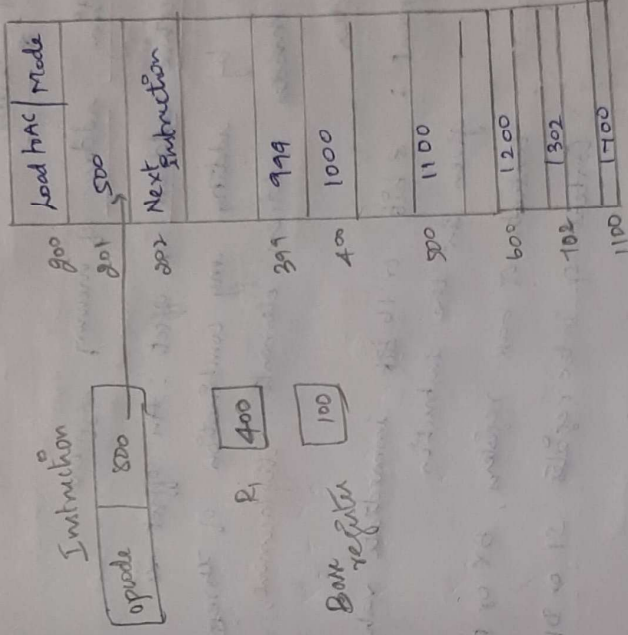 Instruction
opcode 500
R1 400
Base register 100
200 Load to AC | Mode
201 500
202 Next Instruction
399 999
400 1000
500 1100
600 1200
702 1302
1100 1700